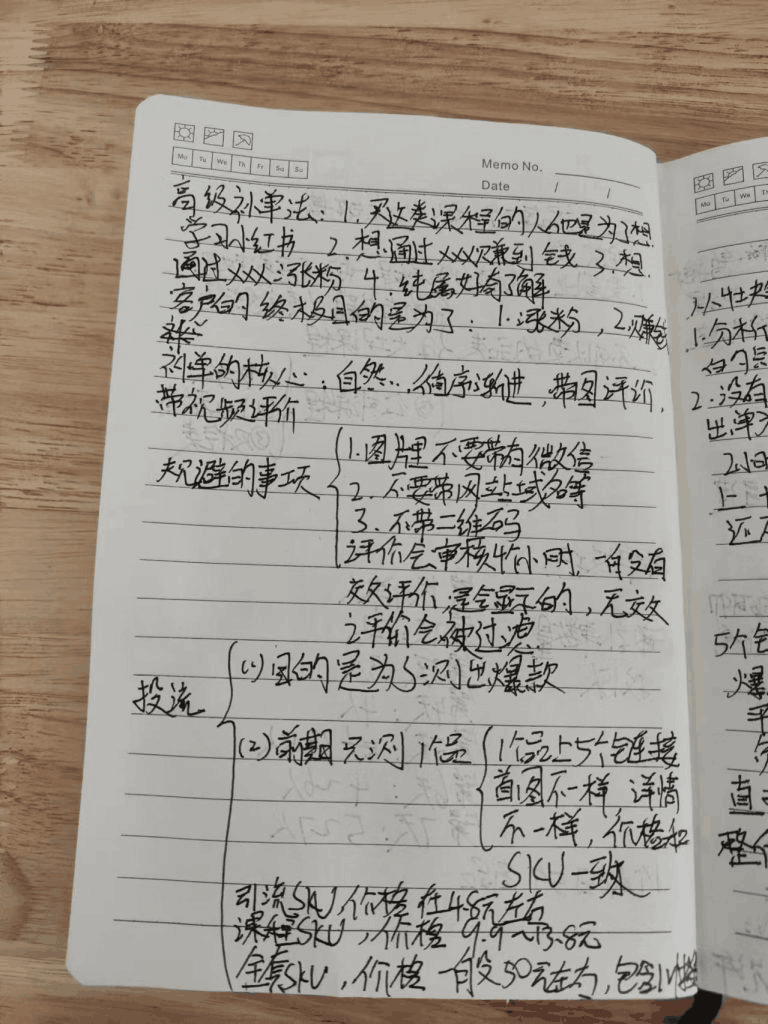 Memo No.
Date / /
Mo Tu We Th Fr Sa Su
高级补单法:1.买这类课程的人他是为了想
学习小红书 2.想通过xxx赚到钱 3.想
通过xxx涨粉 4.纯属好奇了解
客户的终极目的是为了:1.涨粉,2.赚钱
补单的核心:自然..,循序渐进,带图评价,
带视频评价
规避的事项
1.图片里不要带有微信
2.不要带网站域名等
3.不带二维码
评价会审核4个小时,一般没有
效评价,是会显示的,无效
评价会被过滤
投流
(1)目的是为了测出爆款
(2)前期只测1个品
1个品上5个链接
首图不一样 详情
不一样,价格和
SKU一致
引流SKU,价格在4.8元左右
课程SKU,价格9.9~13.8元
全套SKU,价格一般50元左右,包含
Mo Tu We Th
1.分析
2.没有
出单
2小时
还
5个链
爆
直
整个